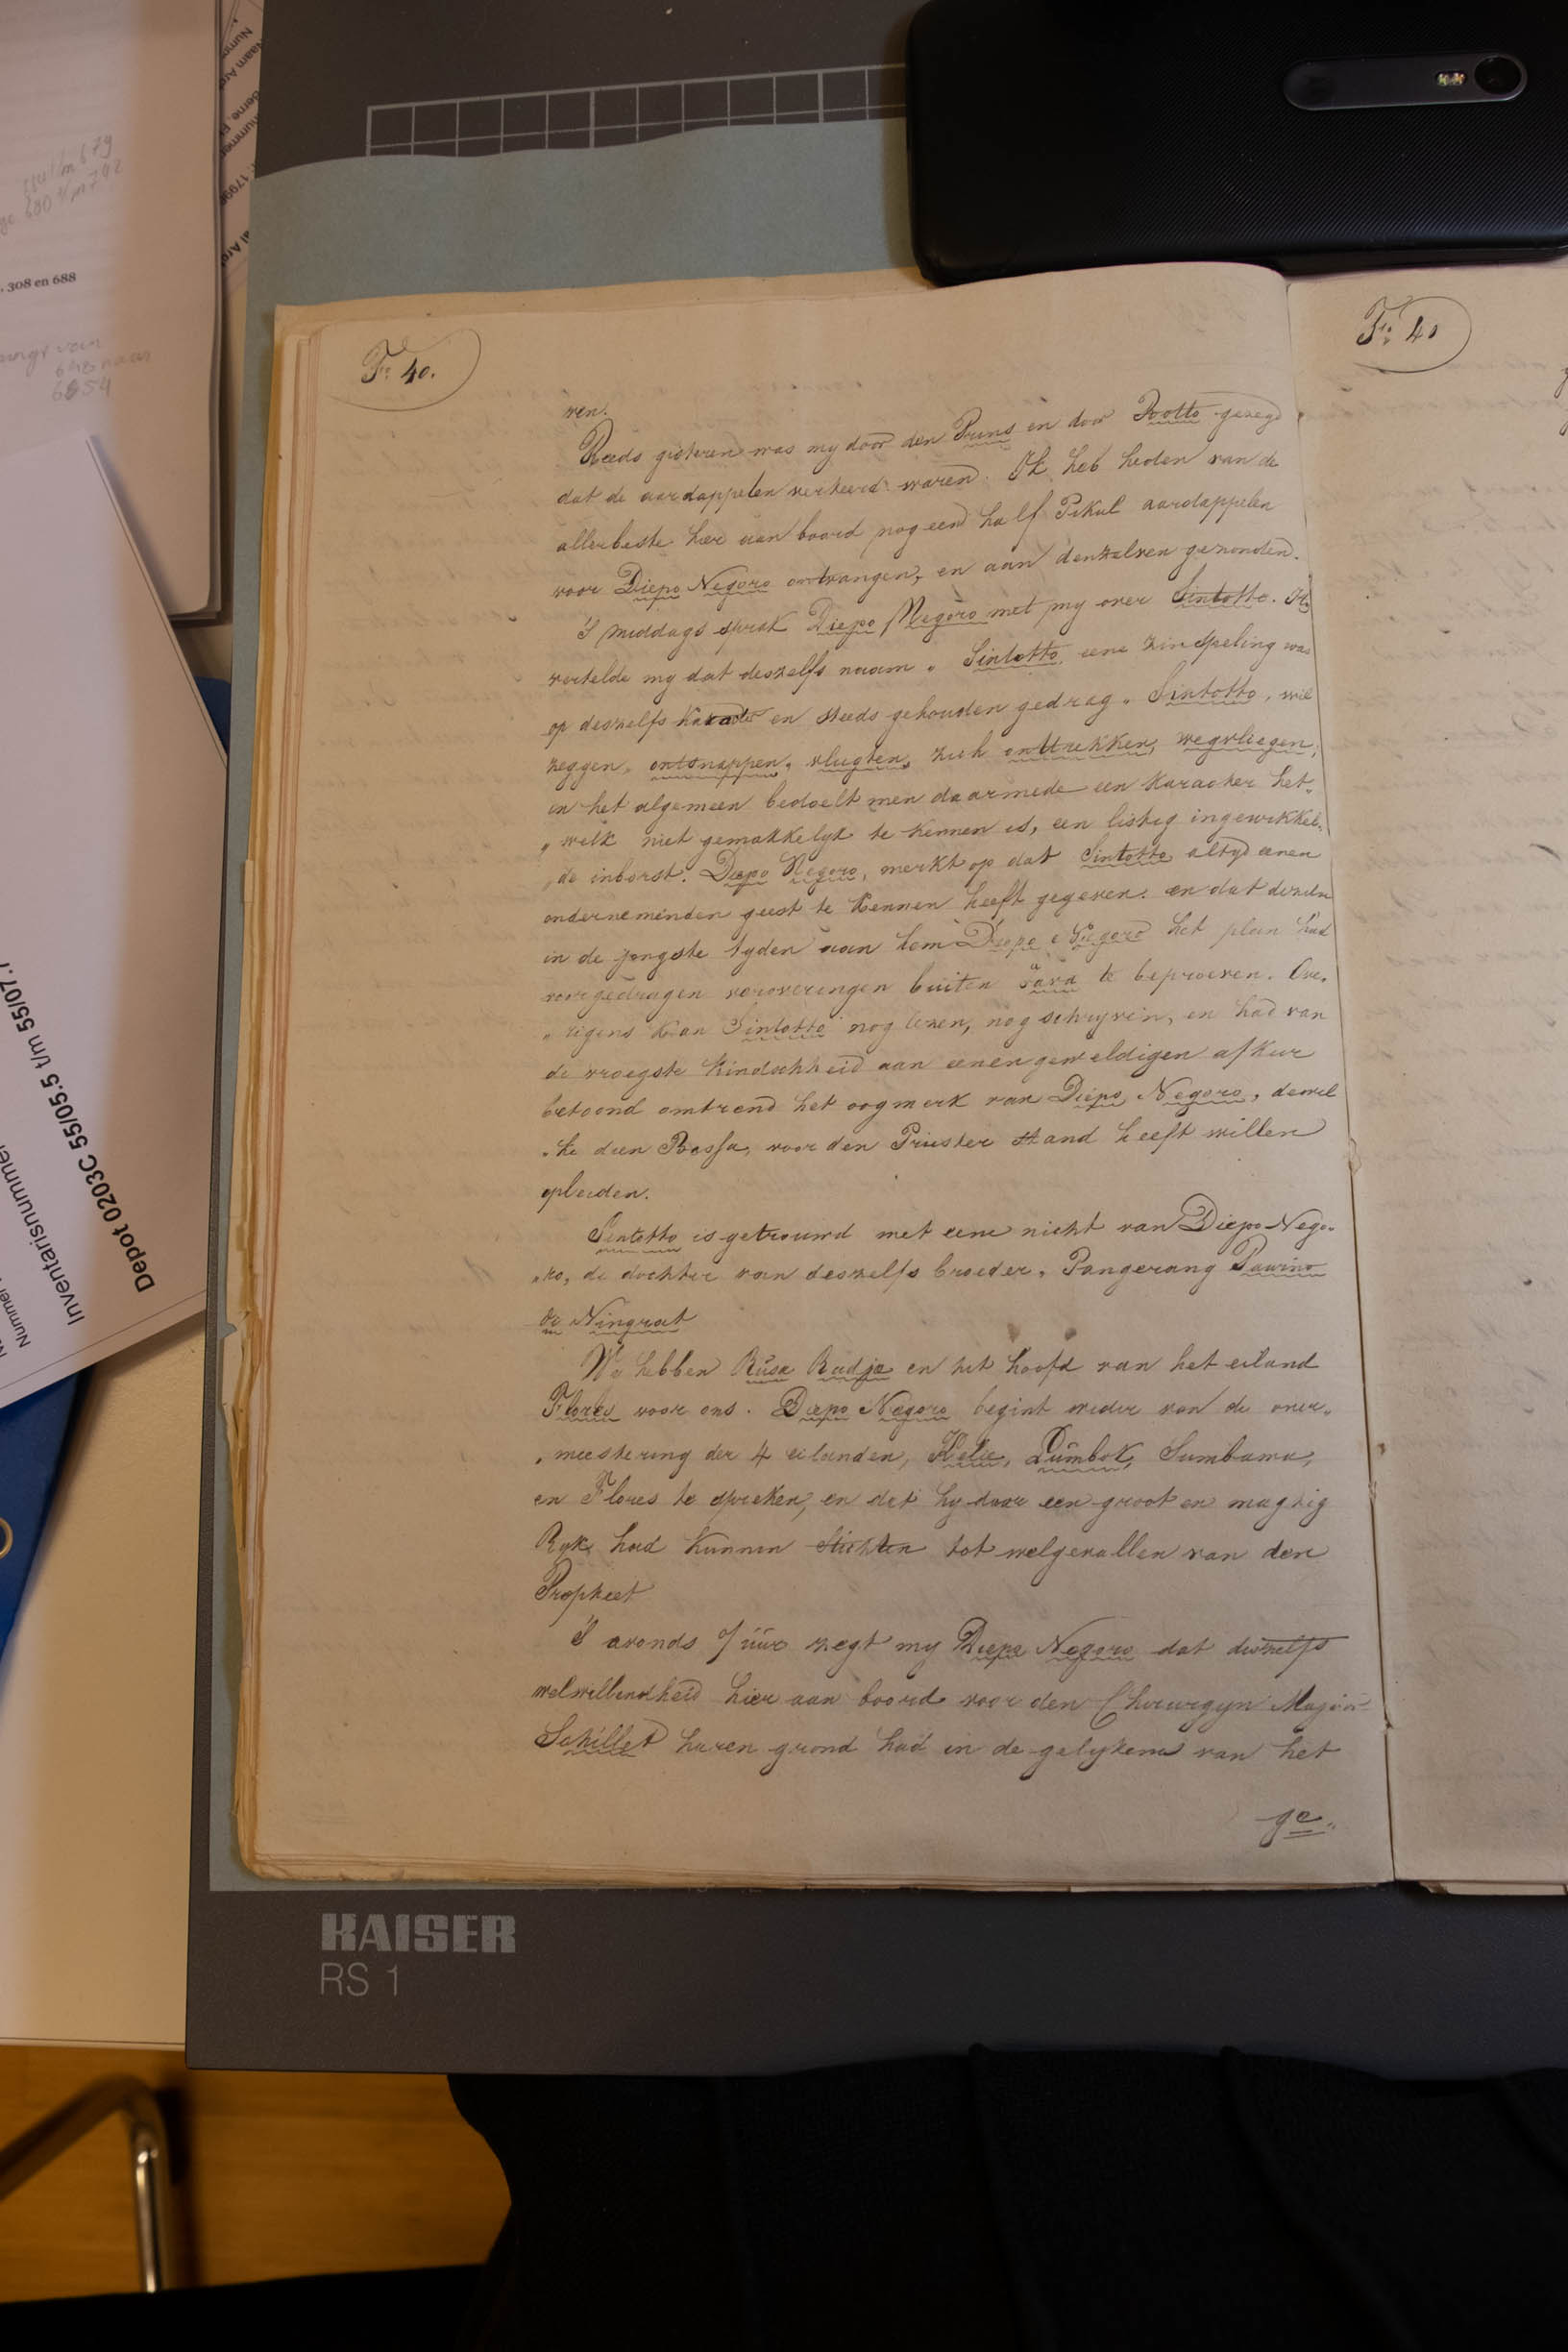 Fo. 40.
ven.
Reeds gisteren was my door den Prins en door Rotto gezegd
dat de aardappelen verkeerd waren. Ik heb heden van de
allerbeste hier aan boord nog eend half Pikul aardappelen
voor Diepo Negoro ontvangen, en aan denzelven gezonden.
'S middags sprak Diepo Negoro met my over Sintotto. Hy
vertelde my dat deszelfs naam „ Sintotto, eene zinspeling was
op deszelfs Karakter en steeds gehouden gedrag „ Sintotto, wil
zeggen „ ontsnappen, vlugten, zich onttrekken, wegvliegen,
in het algemeen bedoelt men daarmede een Karackter het„
„ welk niet gemakkelyk te kennen is, een listig ingewikkel„
„ de inborst. Diepo Negoro, merkt op dat Sintotto altyd eenen
ondernemenden geest te kennen heeft gegeven. en dat dezelve
in de jongste tyden aan hem Diepo Negoro het plan had
voorgedragen veroveringen buiten Java te beproeven. Ove„
„ rigens kan Sintotto nog lezen, nog schryven, en had van
de vroegste kindschheid aan eenen geweldigen afkeer
betoond omtrend het oogmerk van Diepo Negoro, dewel
„ ke dien Bassa, voor den Priester stand heeft willen
opleiden.
Sintotto is getrouwd met eene nicht van Diepo Nego„
„ ro, de dochter van deszelfs broeder, Pangerang Pawino
do Ningrat
Wy hebben Rusa Radja en het hoofd van het eiland
Flores voor ons. Diepo Negoro begint weder van de over„
„ meestering der 4 eilanden, Balie, Lumbok, Sumbawa,
en Flores te spreken, en dat hy daar een groot en magtig
Ryk had kunnen stichten tot welgevallen van den
Propheet
'S avonds 7 uur zegt my Diepo Negoro dat deszelfs
welwillendheid hier aan boord voor den Chirurgyn Majoor
Schillet haren grond had in de gelykenis van het
ge„
Fo. 41
KAISER
RS 1
. 308 en 688
Inventarisnummer
Depot 0203C 55/05.5 t/m 55/07.1